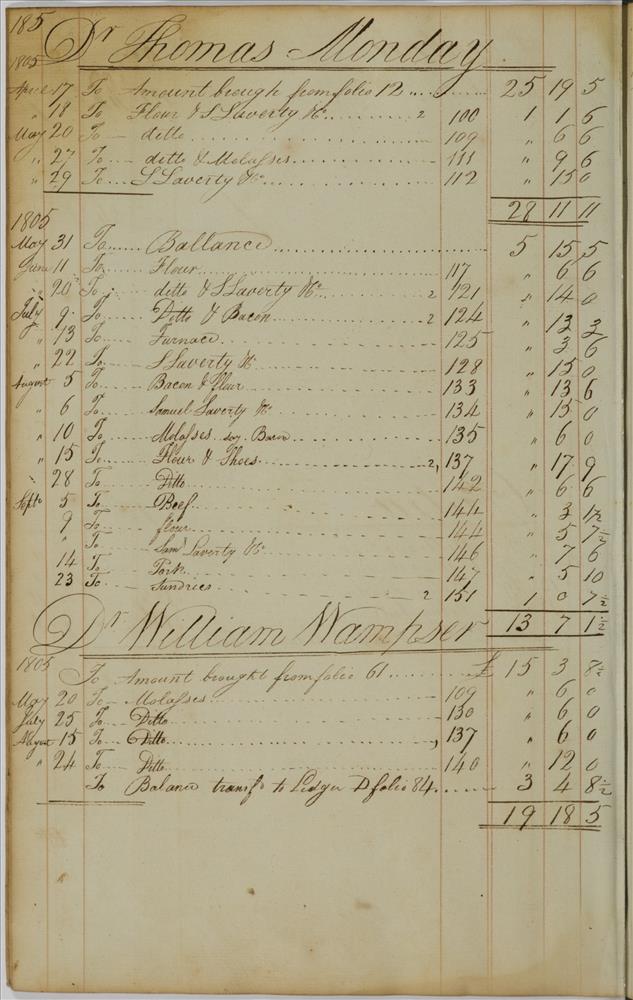 185
Dr Thomas Monday
1805
April 17 To Amount brough from folio 12 25 19 5
" 18 To Flour & S Laverty &c 2 100 1 1 6
May 20 To ditto 109 " 6 6
" 27 To ditto & Molasses 111 " 9 6
" 29 To S Laverty &c 112 " 15 0
28 11 11
1805
May 31 To Ballance 5 15 5
June 11 To Flour 117 " 6 6
" 20 To ditto & S Laverty &c 2 121 " 14 0
July 9 To Ditto & Bacon 2 124 " 13 3
" 13 To Furnace 125 " 3 6
" 22 To S Laverty &c 128 " 15 0
August 5 To Bacon & flour 133 " 13 6
" 6 To Samuel Laverty &c 134 " 15 0
" 10 To Molasses Bacon 135 " 6 0
" 15 To Flour & Shoes 2, 137 " 17 9
" 28 To Ditto 142 " 6 6
Septr 5 To Beef 144 " 3 1½
9 To flour 144 " 5 7½
" To Saml Laverty &c 146 " 7 6
14 To Pork 147 " 5 10
23 To Sundries 2 151 1 0 7½
13 7 1½
Dr William Wampser
1805
To Amount brought from folio 61 £ 15 3 8½
May 20 To Molasses 109 " 6 0
July 25 To Ditto 130 " 6 0
August 15 To Ditto , 137 " 6 0
" 24 To Ditto 140 " 12 0
To Balance transfd to Ledger D folio 84 3 4 8½
19 18 5